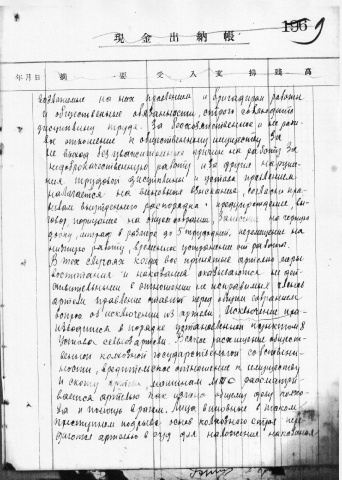 196 9
現金出納帳
年月日 摘要 受入 支拂 残高
возложенные на них правлением и бригадирами работы
и общественные обязанности, строго соблюдать
дисциплину труда. За бесхозяйственное и не
ное отношение к общественному имуществу за
не выход без уважительных причин на работу за
недоброкачественную работу и за другие наруше-
ния трудовой дисциплины и устава правлением
налагается на виновного взыскание, согласно пра-
вилам внутреннего распорядка: предупреждение, вы-
говор, порицание на общем собрании, занесение на черную
доску, штраф в размере до 5 трудодней, перемещение на
низшую работу, временное отстранение от работы.
В тех случаях когда все принятые артелью меры
воспитания и наказания оказываются не дей-
ствительными в отношении не исправимых членов
артели правление ставит перед общим собранием
вопрос об исключении из артели. Исключение про-
изводится в порядке установленном пунктом 8
Устава сельхозартели. Всякое расхищение общест-
венной колхозной государственной собственно-
ности, вредительское отношение к имуществу
и скоту артели машинам МТС рассматри-
вается артелью как измена общему делу колхо-
за и помощь врагам. Лица виновные в таком
преступном подрыве основ колхозного строя пере-
даются артелью в суд для наложения наказания